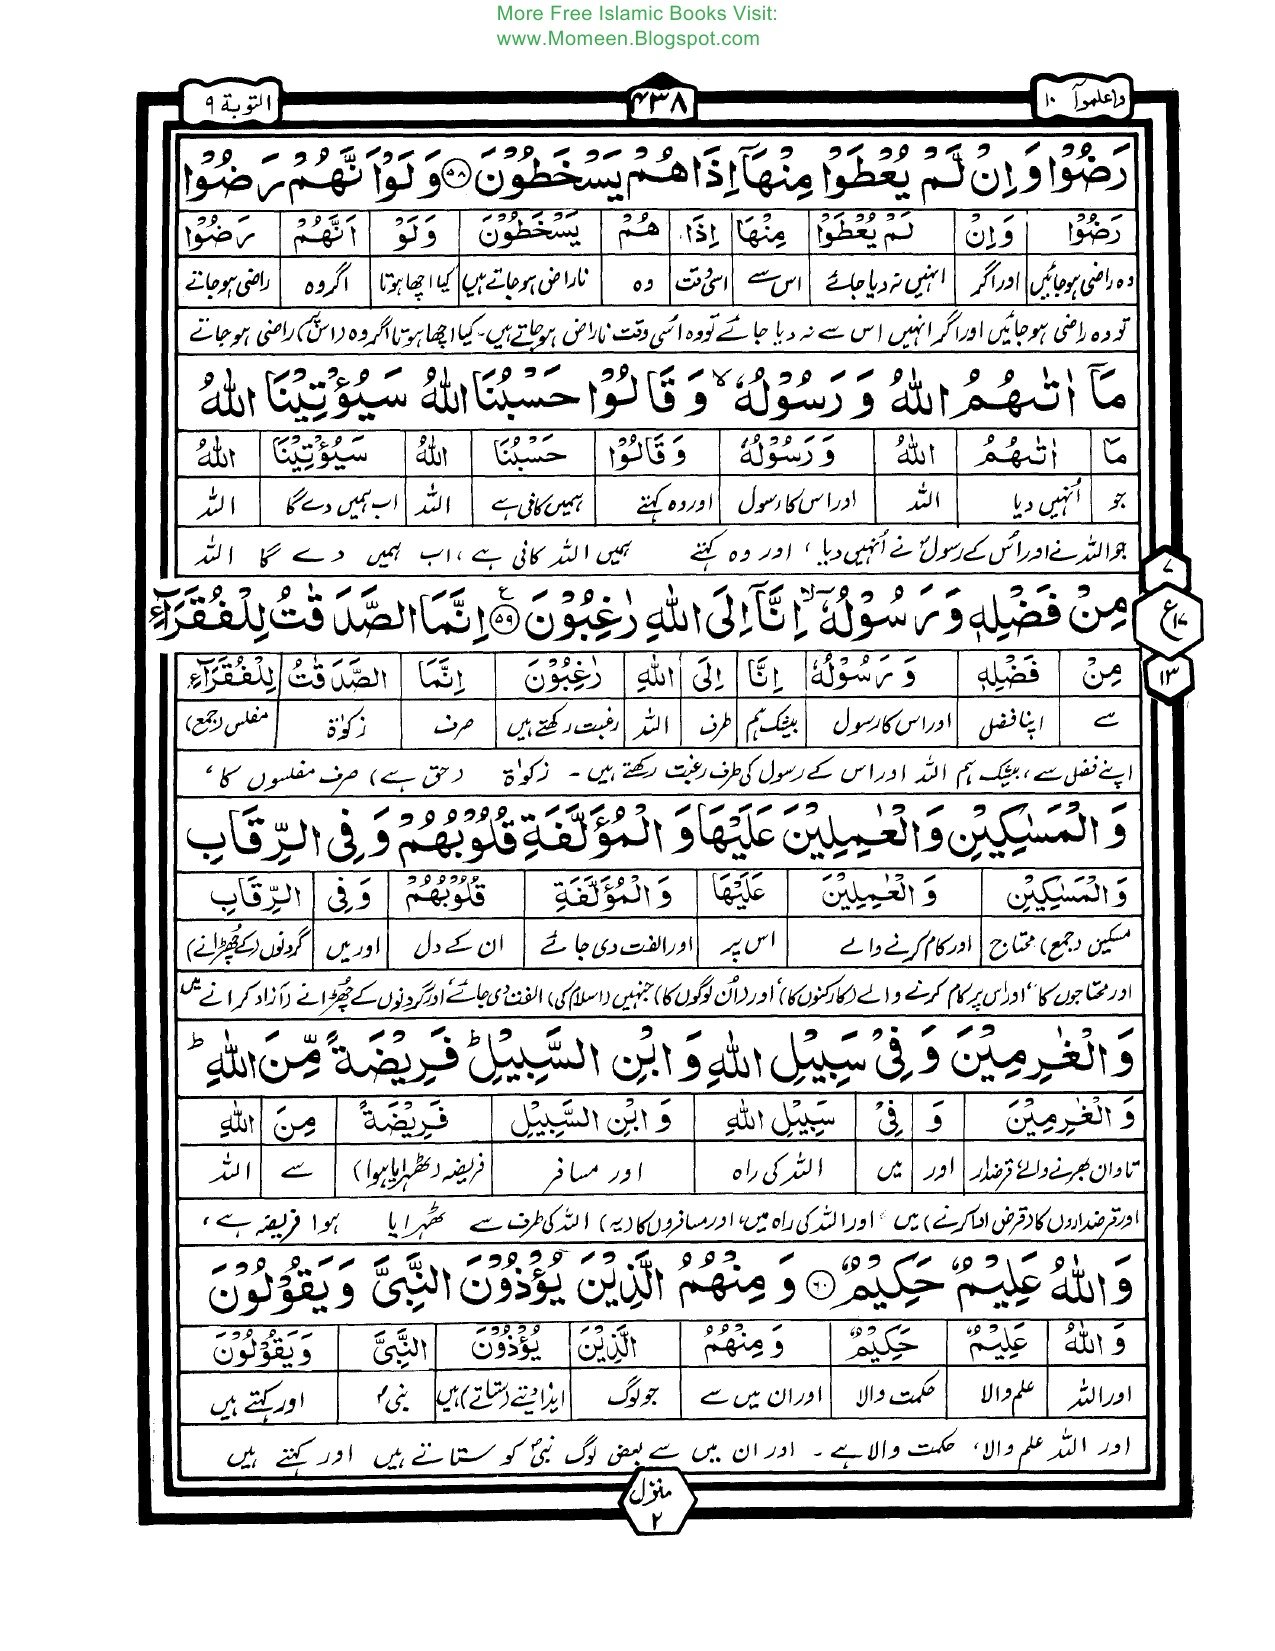 More Free Islamic Books Visit:
www.Momeen.Blogspot.com
واعلموآ ۱۰
۴۳۸
التوبة ۹
رَضُوْا وَ اِنْ لَّمْ يُعْطَوْا مِنْهَآ اِذَا هُمْ يَسْخَطُوْنَ ۵۸ وَ لَوْ اَنَّهُمْ رَضُوْا
رَضُوْا وَ اِنْ لَمْ يُعْطَوْا مِنْهَا اِذَا هُمْ يَسْخَطُوْنَ وَ لَوْ اَنَّهُمْ رَضُوْا
وہ راضی ہوجائیں اور اگر انہیں نہ دیا جائے اس سے اسی وقت وہ ناراض ہوجاتے ہیں کیا اچھا ہوتا اگر وہ راضی ہوجاتے
تو وہ راضی ہو جائیں اور اگر انہیں اس سے نہ دیا جائے تو وہ اُسی وقت ناراض ہوجاتے ہیں۔ کیا اچھا ہوتا اگر وہ (اس پر) راضی ہو جاتے
مَآ اٰتٰىهُمُ اللّٰهُ وَ رَسُوْلُهٗ ۙ وَ قَالُوْا حَسْبُنَا اللّٰهُ سَيُؤْتِيْنَا اللّٰهُ
مَا اٰتٰىهُمُ اللّٰهُ وَ رَسُوْلُهٗ وَ قَالُوْا حَسْبُنَا اللّٰهُ سَيُؤْتِيْنَا اللّٰهُ
جو اُنہیں دیا اللہ اور اس کا رسول اور وہ کہتے ہمیں کافی ہے اللہ اب ہمیں دے گا اللہ
جو اللہ نے اور اُس کے رسولؐ نے اُنہیں دیا، اور وہ کہتے ہمیں اللہ کافی ہے، اب ہمیں دے گا اللہ
مِنْ فَضْلِهٖ وَ رَسُوْلُهٗٓ ۙ اِنَّآ اِلَى اللّٰهِ رٰغِبُوْنَ ۵۹ ع اِنَّمَا الصَّدَقٰتُ لِلْفُقَرَآءِ
۷
ع ۱۷
۱۳
مِنْ فَضْلِهٖ وَ رَسُوْلُهٗ اِنَّا اِلَى اللّٰهِ رٰغِبُوْنَ اِنَّمَا الصَّدَقٰتُ لِلْفُقَرَآءِ
سے اپنا فضل اور اس کا رسول بیشک ہم طرف اللہ رغبت رکھتے ہیں صرف زکوٰۃ مفلس (جمع)
اپنے فضل سے، بیشک ہم اللہ اور اس کے رسول کی طرف رغبت رکھتے ہیں۔ زکوٰۃ (حق ہے) صرف مفلسوں کا،
وَ الْمَسٰكِيْنِ وَ الْعٰمِلِيْنَ عَلَيْهَا وَ الْمُؤَلَّفَةِ قُلُوْبُهُمْ وَ فِى الرِّقَابِ
وَ الْمَسٰكِيْنِ وَ الْعٰمِلِيْنَ عَلَيْهَا وَ الْمُؤَلَّفَةِ قُلُوْبُهُمْ وَ فِى الرِّقَابِ
مسکین (جمع) محتاج اور کام کرنے والے اس پر اور الفت دی جائے ان کے دل اور میں گردنوں (کے چھڑانے)
اور محتاجوں کا، اور اس پر کام کرنے والے (کارکنوں کا) اور (اُن لوگوں کا) جنہیں (اسلام کی) الفت دی جائے، اور گردنوں کے چھڑانے (آزاد کرانے میں
وَ الْغٰرِمِيْنَ وَ فِىْ سَبِيْلِ اللّٰهِ وَ ابْنِ السَّبِيْلِ ؕ فَرِيْضَةً مِّنَ اللّٰهِ ؕ
وَ الْغٰرِمِيْنَ وَ فِىْ سَبِيْلِ اللّٰهِ وَ ابْنِ السَّبِيْلِ فَرِيْضَةً مِنَ اللّٰهِ
تاوان بھرنے والے قرضدار اور میں اللہ کی راہ اور مسافر فریضہ (ٹھہرایا ہوا) سے اللہ
اور قرضداروں کا (قرض ادا کرنے) میں اور اللہ کی راہ میں، اور مسافروں کا (یہ) اللہ کی طرف سے ٹھہرایا ہوا فریضہ ہے،
وَ اللّٰهُ عَلِيْمٌ حَكِيْمٌ ۶۰ وَ مِنْهُمُ الَّذِيْنَ يُؤْذُوْنَ النَّبِىَّ وَ يَقُوْلُوْنَ
وَ اللّٰهُ عَلِيْمٌ حَكِيْمٌ وَ مِنْهُمُ الَّذِيْنَ يُؤْذُوْنَ النَّبِىَّ وَ يَقُوْلُوْنَ
اور اللہ علم والا حکمت والا اور ان میں سے جو لوگ ایذا دیتے (ستاتے) ہیں نبیؐ اور کہتے ہیں
اور اللہ علم والا، حکمت والا ہے۔ اور ان میں سے بعض لوگ نبیؐ کو ستاتے ہیں اور کہتے ہیں
منزل
۲